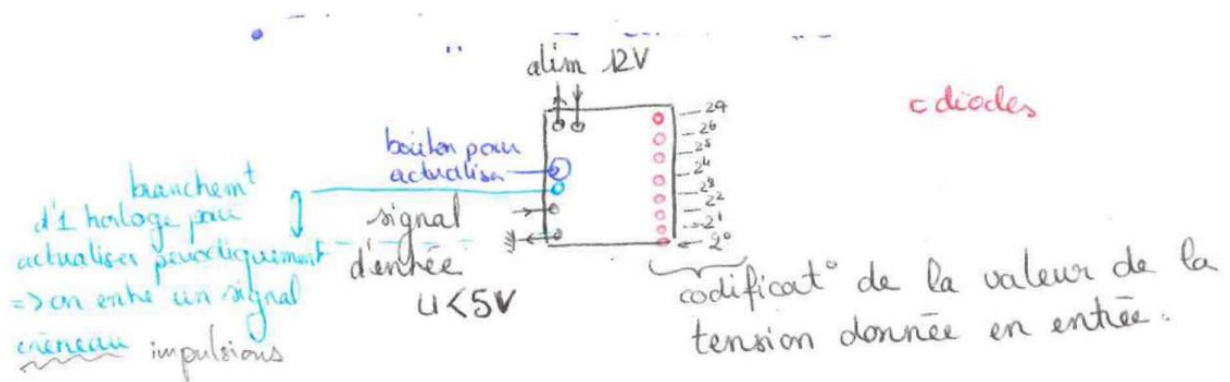 alim 12V
c diodes
bouton pour
actualiser
branchem^t
d'1 horloge pour
actualiser périodiquement
=> on entre un signal
créneau impulsions
signal
d'entrée
U<5V
2^7
2^6
2^5
2^4
2^3
2^2
2^1
2^0
codificat° de la valeur de la
tension donnée en entrée.